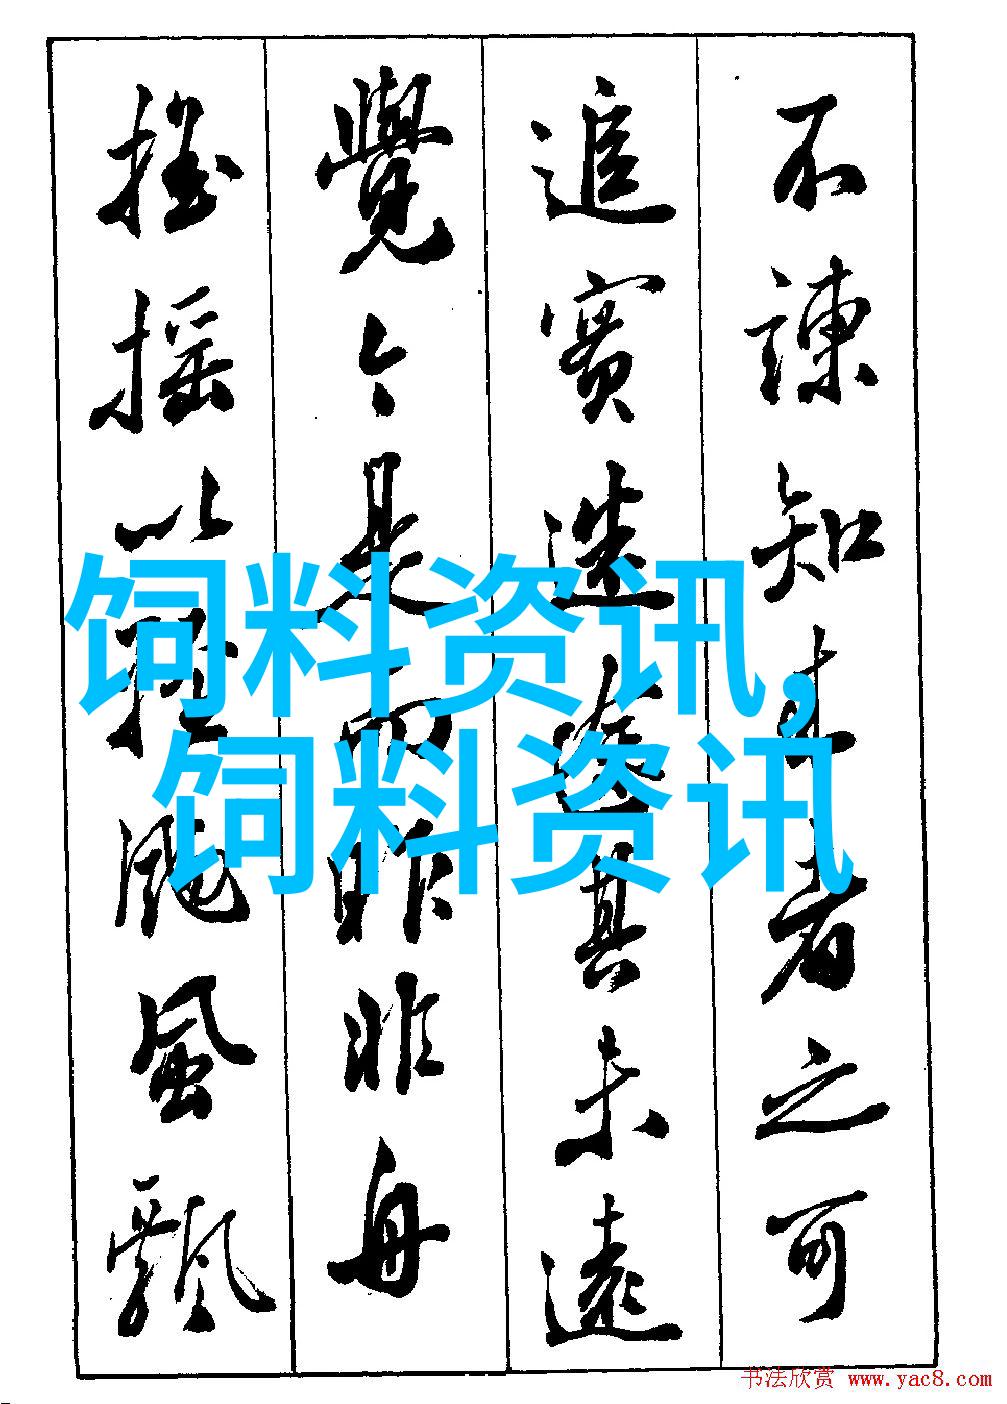 不諫知来者之可
追實迷途其未遠
覺今是而昨非舟
搖摇以輕颺風飄
饲料资讯,
饲料资讯
书法欣赏 www.yac8.com